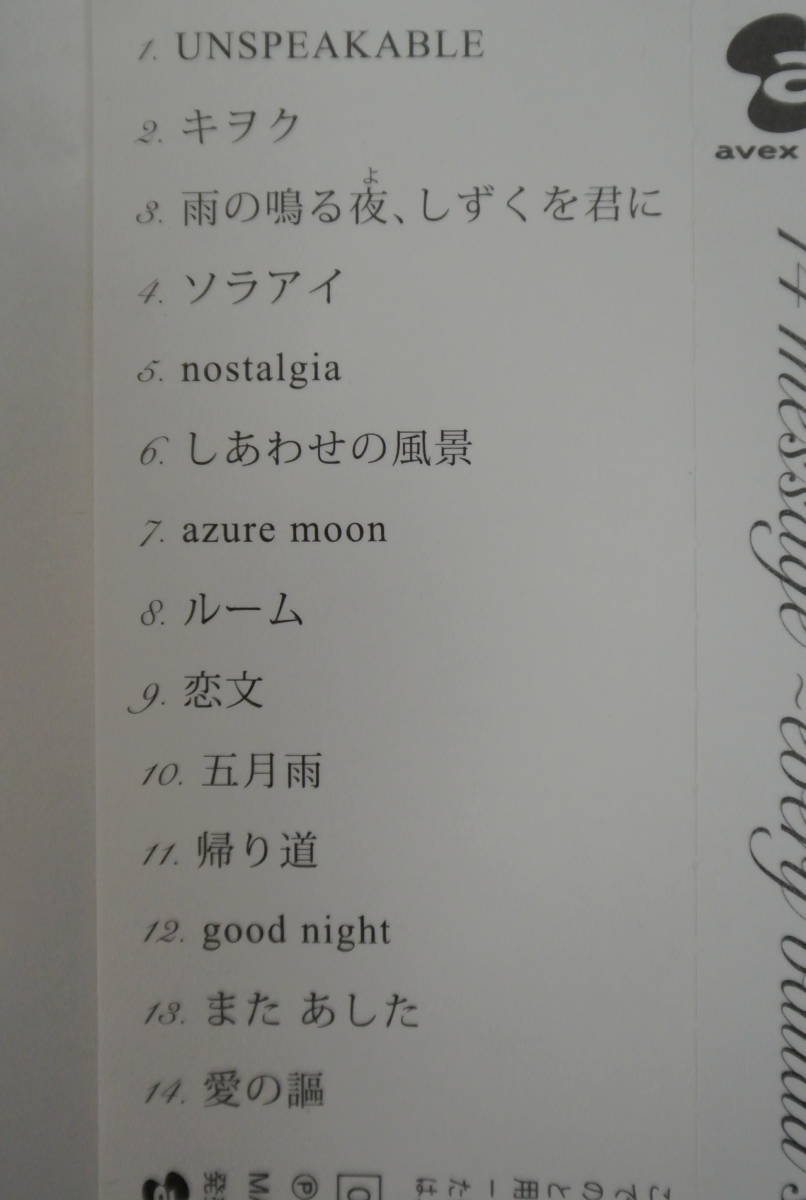 1. UNSPEAKABLE
2. キヲク
よ
3. 雨の鳴る夜、しずくを君に
4. ソラアイ
5. nostalgia
6. しあわせの風景
7. azure moon
8. ルーム
9. 恋文
10. 五月雨
11. 帰り道
12. good night
13. また あした
14. 愛の謳
avex
14 message ~every